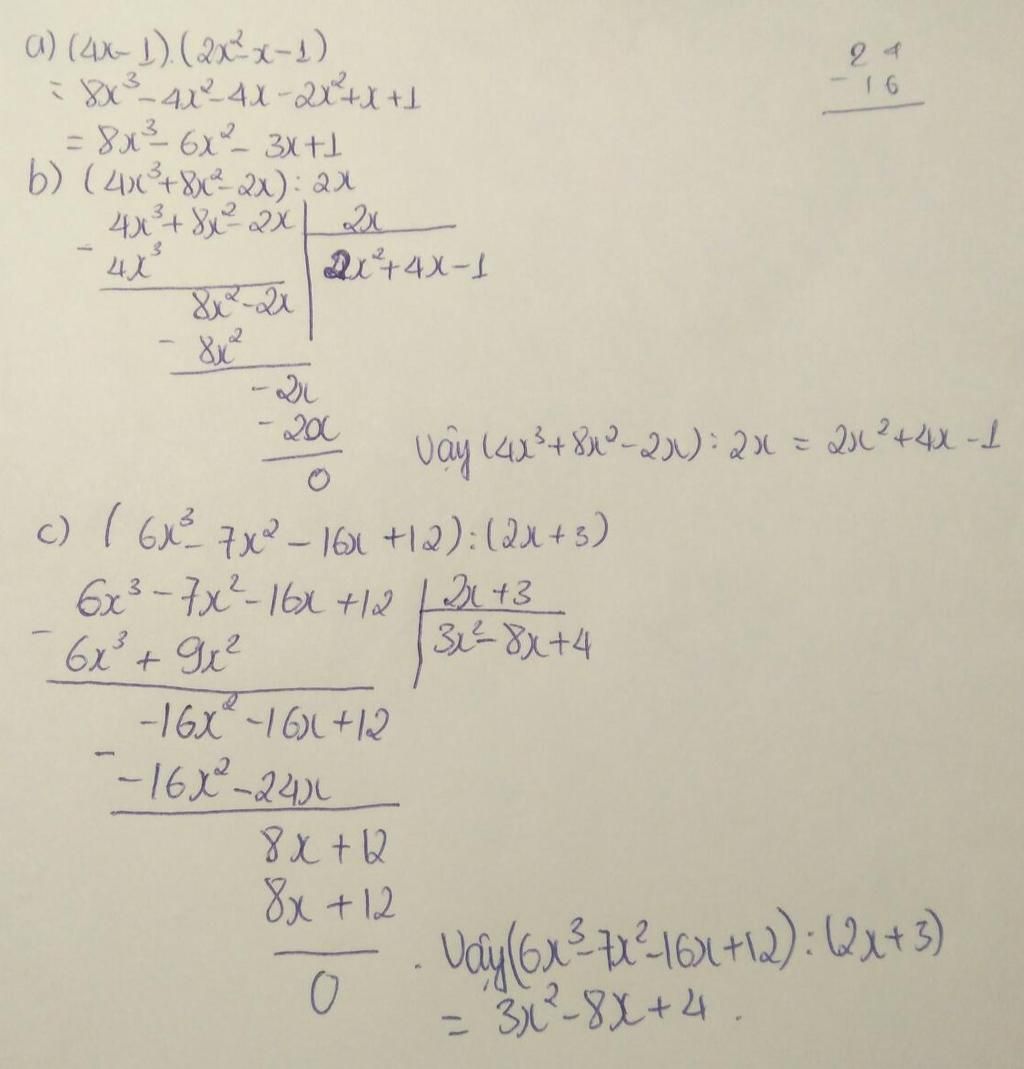 a) (4x-1).(2x²-x-1)
= 8x³-4x²-4x-2x²+x+1
= 8x³-6x²-3x+1
24
- 16
b) (4x³+8x²-2x):2x
4x³+8x²-2x | 2x
- 4x³ | 2x²+4x-1
8x²-2x
- 8x²
-2x
-2x
0
Vậy (4x³+8x²-2x):2x = 2x²+4x-1
c) (6x³-7x²-16x+12):(2x+3)
6x³-7x²-16x+12 | 2x+3
- 6x³+9x² | 3x²-8x+4
-16x²-16x+12
- -16x²-24x
8x+12
8x+12
0
. Vậy(6x³-7x²-16x+12):(2x+3)
= 3x²-8x+4.